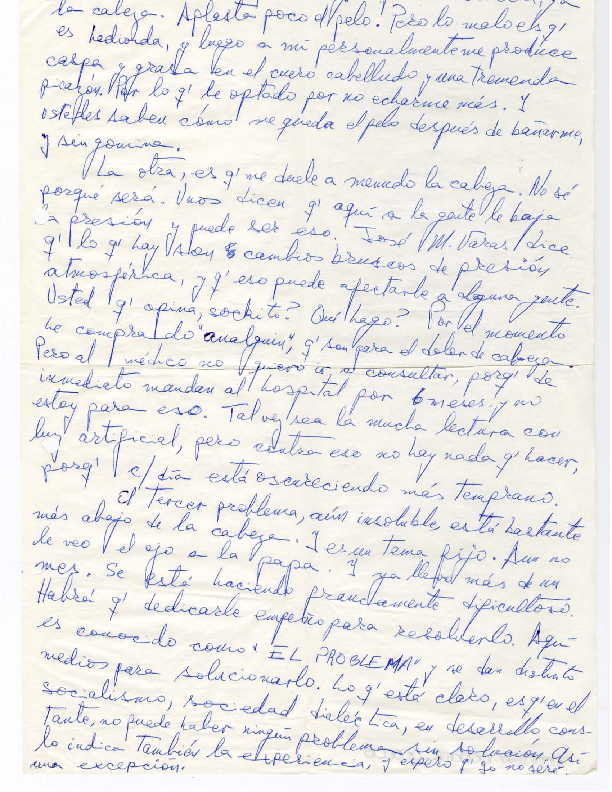 la cabeza. Aplasta poco el pelo. Pero lo malo es q'
es hedionda, y luego a mi personalmente me produce
caspa y grasa en el cuero cabelludo y una tremenda
picazón. Por lo q' he optado por no echarme más. Y
ustedes saben cómo me queda el pelo después de bañarme,
y sin gomina.
La otra, es q' me duele a menudo la cabeza. No sé
porqué será. Unos dicen q' aquí a la gente le baja
la presión y puede ser eso. José M. Varas dice
q' lo q' hay son cambios bruscos de presión
atmosférica, y q' eso puede afectarle a alguna gente.
Usted q' opina, sochito? Qué hago? Por el momento
he comprado "analguin", q' son para el dolor de cabeza.
Pero al médico no quiero ir a consultar, porq' de
inmediato mandan al hospital por 6 meses y no
estoy para eso. Tal vez sea la mucha lectura con
luz artificial, pero contra eso no hay nada q' hacer,
porq' c/día está oscureciendo más temprano.
El Tercer problema, aún insoluble, está bastante
más abajo de la cabeza. Y es un tema fijo. Aun no
le veo el ojo a la papa. Y ya llevo más de un
mes. Se está haciendo francamente dificultoso.
Habrá q' dedicarle empeño para resolverlo. Aquí
es conocido como "EL PROBLEMA" y se dan distintos
medios para solucionarlo. Lo q' está claro, es q' en el
socialismo, sociedad dialéctica, en desarrollo cons-
tante, no puede haber ningún problema sin solución. Así
lo indica también la experiencia, y espero q' yo no seré
una excepción.